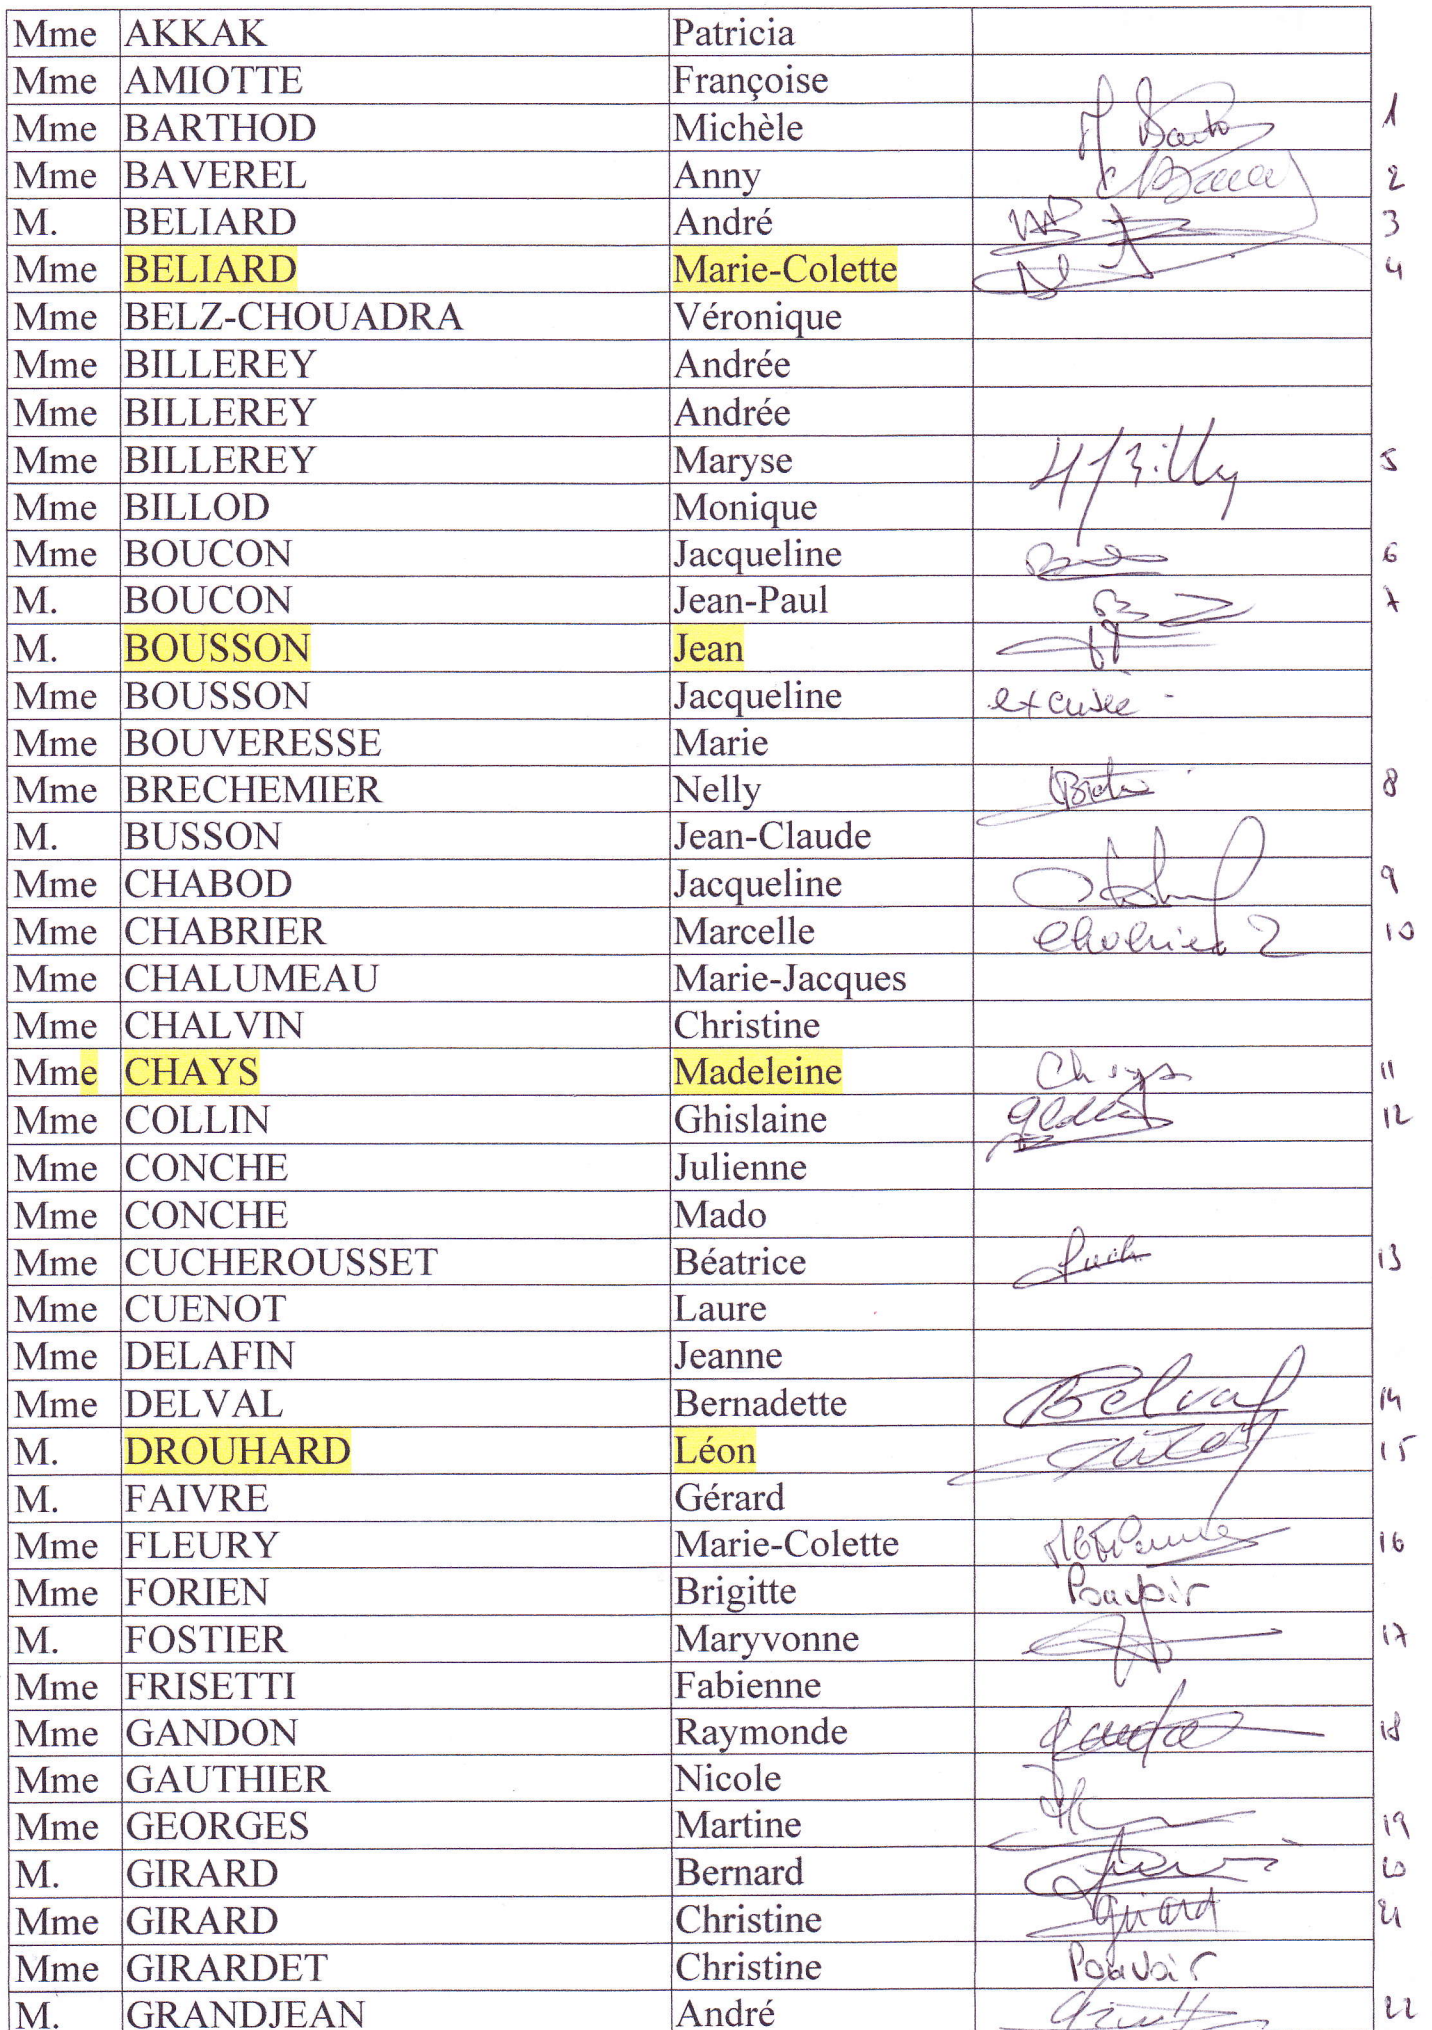 Mme AKKAK Patricia
Mme AMIOTTE Françoise
Mme BARTHOD Michèle 1
Mme BAVEREL Anny 2
M. BELIARD André 3
Mme BELIARD Marie-Colette 4
Mme BELZ-CHOUADRA Véronique
Mme BILLEREY Andrée
Mme BILLEREY Andrée
Mme BILLEREY Maryse 5
Mme BILLOD Monique
Mme BOUCON Jacqueline 6
M. BOUCON Jean-Paul 7
M. BOUSSON Jean
Mme BOUSSON Jacqueline excusée -
Mme BOUVERESSE Marie
Mme BRECHEMIER Nelly 8
M. BUSSON Jean-Claude
Mme CHABOD Jacqueline 9
Mme CHABRIER Marcelle 10
Mme CHALUMEAU Marie-Jacques
Mme CHALVIN Christine
Mme CHAYS Madeleine Chays 11
Mme COLLIN Ghislaine 12
Mme CONCHE Julienne
Mme CONCHE Mado
Mme CUCHEROUSSET Béatrice 13
Mme CUENOT Laure
Mme DELAFIN Jeanne
Mme DELVAL Bernadette Delval 14
M. DROUHARD Léon 15
M. FAIVRE Gérard
Mme FLEURY Marie-Colette 16
Mme FORIEN Brigitte Pouvoir
M. FOSTIER Maryvonne 17
Mme FRISETTI Fabienne
Mme GANDON Raymonde 18
Mme GAUTHIER Nicole
Mme GEORGES Martine 19
M. GIRARD Bernard 20
Mme GIRARD Christine girard 21
Mme GIRARDET Christine Pouvoir
M. GRANDJEAN André 22